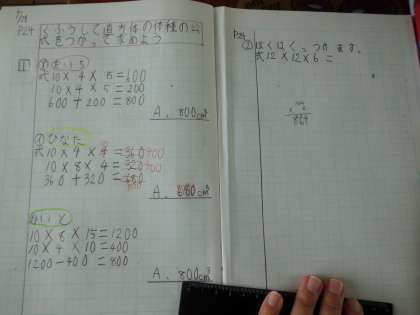 P24
くふうして直方体の体積の公
式をつかってもとめよう
1
式10×4×15=600
10×4×5=200
600+200=800
A、800cm³
ひなた
式10×4×4=360 400
10×8×4=320 400
360+320=680
A、880cm³
10×8×15=1200
10×4×10=400
1200-400=800
A、800cm³
P24
② ぼくは く っつけます。
式12×12×6=
864